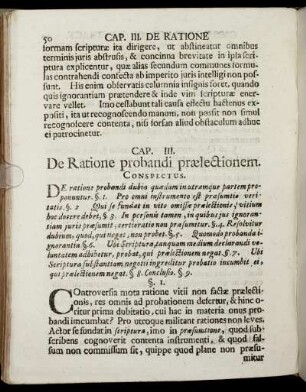 50 CAP. III. DE RATIONE
formam scripturæ ita dirigere, ut abstineatur omnibus
terminis juris abstrusis, & concinna brevitate in ipsa scri-
ptura explicentur, quæ alias secundum communes formu-
las contrahendi confecta ab imperito juris intelligi non pos-
sunt. His enim observatis columnis insignis foret, quando
quis ignorantiam prætendere & inde vim scripturæ ener-
vare vellet. Imo cessabunt tali causa effectu hactenus ex-
positi, ita ut recognoscendo manum, non possit non simul
recognoscere contenta, nisi forsan aliud obstaculum adhuc
ei patrocinetur.
CAP. III.
De Ratione probandi prælectionem.
CONSPECTUS.
DE ratione probandi dubia quæsium in utramque partem pro-
ponuntur. §. 1. Pro omni instrumento est præsumtio veri-
tatis. §. 2 Qui se fundat in vitio omissæ prælectionis, vitium
hoc docere debet. §. 3. In personis tamen, in quibus jus ignoran-
tiam juris præsumit, certioratio non præsumitur. §. 4. Resolvitur
dubium, quod, qui negat, non probet. §. 5. Quomodo probanda i-
gnorantia §. 6. Ubi Scriptura, tanquam medium declarandi vo-
luntatem adhibetur, probat, qui prælectionem negat. §. 7. Ubi
Scriptura substantiam negotii ingreditur probatio incumbit ei,
qui prælectionem negat. §. 8. Conclusio. §. 9.
§. 1.
Controversia mota ratione vitii non factæ prælecti-
onis, res omnis ad probationem defertur, & hinc o-
ritur prima dubitatio, cui hac in materia onus pro-
bandi incumbat? Pro utroque militant rationes non leves.
Actor se fundat in scriptura, imo in præsumtione, quod sub-
scribens cognoverit contenta instrumenti, & quod fal-
sum non commissum sit, quippe quod plane non præsu-
mitur